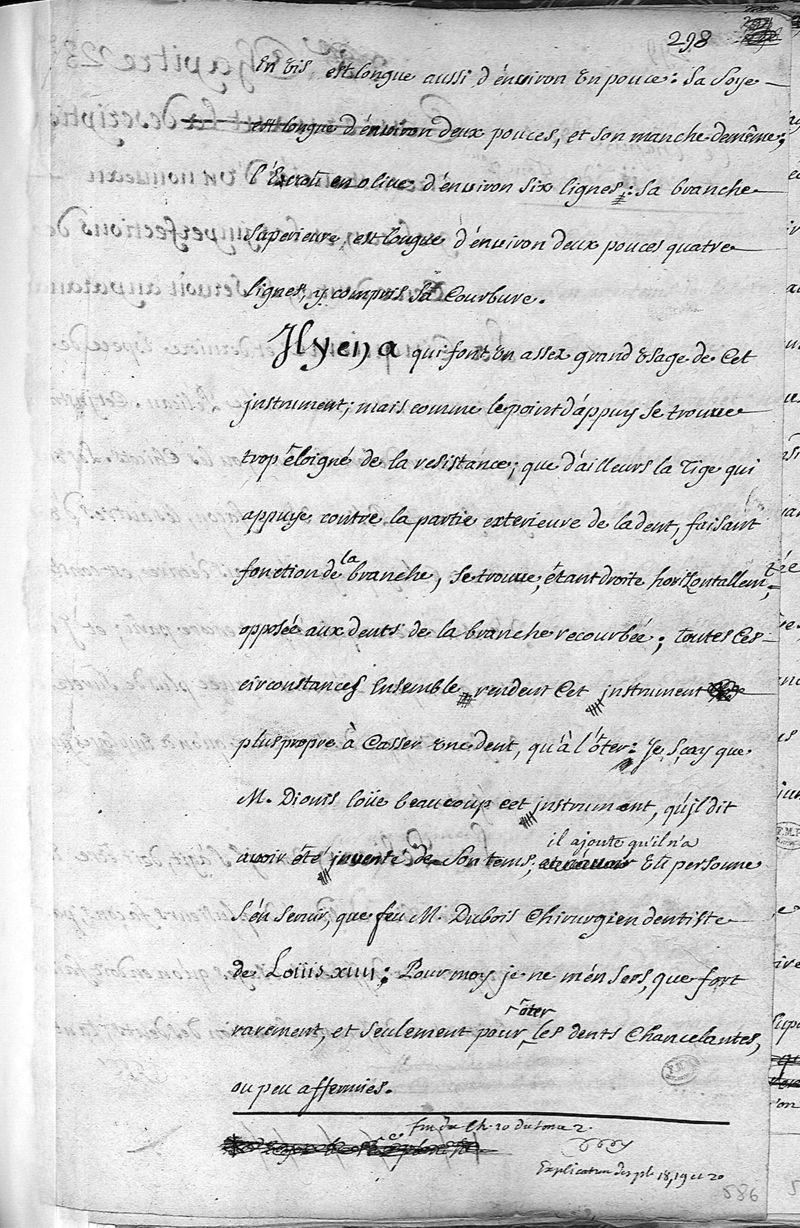 298
En vis, est longue aussi d'énviron un pouce: Sa Soye
est longue d'énviron deux pouces, et son manche demême;
l'Ecroü en olive d'énviron six lignes; : Sa branche
Superieure, est longue d'énviron deux pouces quatre
lignes, y compris Sa Courbure.
Il y en a qui font un assez grand usage de Cet
instrument; mais comme le point d'áppuy Se trouve
trop éloigné de la resistance; que d'ailleurs la Tige qui
appuye contre la partie exterieure de la dent, faisant
fonction de la branche, Se trouve, étant droite horizontallem.t
opposée aux dents de la branche recourbée; Toutes Ces
circonstances Ensemble, rendent Cet instrument
plus propre à Casser une dent, qu'à l'ôter: Je Sçay que
M. Dionis loüe beaucoup cet instrument, qu'il dit
il ajoute qu'il n'a
avoir été inventé de Son tems; vu personne
S'én Servir, que feu M. Dubois Chirurgien dentiste
de Loüis XIIII; Pour moy je ne m'én Sers, que fort
rarement, et Seulement pour ôter les dents Chancelantes,
ou peu affermies.
fin du Ch. 20 du tome 2.
Explication des pl. 18, 19 et 20
286